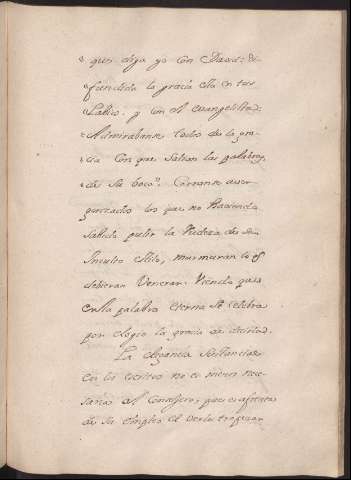 que diga yo con David: di
fundida la gracia está en tus
Labios. y con el evangelista:
Admirabanse todos de la gra
cia con que salian las palabras
de su boca. Corranse aver
gonzados los que no haviendo
sabido pulir la rudeza de su
Inculto estilo, murmuran lo q
debieran Venerar: Viendo que
en la palabra eterna se celebra
por elogio la gracia de
La elegancia Sentenciosa
en los escritos no es menos nece
saria al Consejero, que es afrenta
de su empleo el verle tropezar